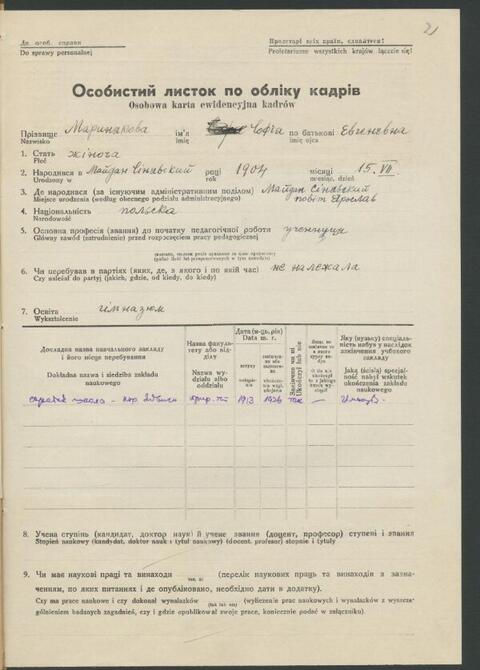 21
До особ. справи
Do sprawy personalnej
Пролетарі всіх країн, єднайтеся!
Proletariusze wszystkich krajów łączcie się!
Особистий листок по обліку кадрів
Osobowa karta ewidencyjna kadrów
Прізвище Маринакова ім'я Софія по батькові Евгеневна
Nazwisko imię imię ojca
1. Стать жіноча
Płeć
2. Народився в Майдан Сінявский році 1904 місяці 15.VII
Urodzony w rok miesiąc, dzień
3. Де народився (за існуючим адміністративним поділом) Майдан Сінявський
Miejsce urodzenia (według obecnego podziału administracyjnego) повіт Ярослав
4. Національність польска
Narodowość
5. Основна професія (звання) до початку педагогічної роботи учениця
Główny zawód (zatrudnienie) przed rozpoczęciem pracy pedagogicznej
6. Чи перебував в партіях (яких, де, з якого і по якій час) не належала
Czy należał do partyj (jakich, gdzie, od kiedy, do kiedy)
7. Освіта гімназюм
Wykształcenie
Докладна назва навчального закладу і його місце перебування
Dokładna nazwa i siedziba zakładu naukowego
Назва факультету або відділу
Nazwa wydziału albo oddziału
Дата (м-ць, рік)
Data m. r.
Закінчив чи ні
Ukończył lub nie
Яку (вузьку) спеціальність набув у наслідок закінчення учбового закладу
Jaką (ścisłą) specjalność nabył wskutek ukończenia zakładu naukowego
1913 1926 так -
8. Учена ступінь (кандидат, доктор наук) й учене звання (доцент, професор) ступені і звання
Stopień naukowy (kandydat, doktor nauk i tytuł naukowy) (docent, profesor) stopnie i tytuły
9. Чи має наукові праці та винаходи (перелік наукових праць та винаходів з зазначенням, по яких питаннях і де опубліковано, необхідно дати в додатку).
так, ні
Czy ma prace naukowe i czy dokonał wynalazków (wyliczenie prac naukowych i wynalazków z wyszczególnieniem badanych zagadnień, czy i gdzie opublikował swoje prace, koniecznie podać w załączniku).
(tak lub nie)